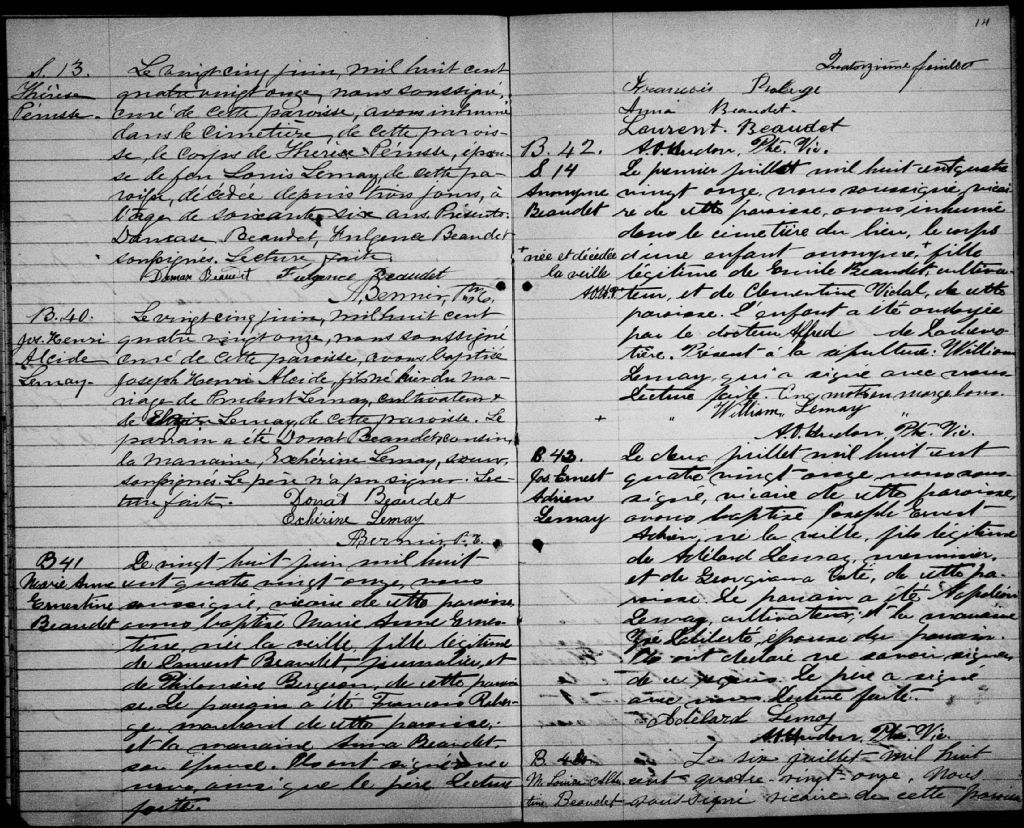 S. 13.
Thérèse
Pérusse.
Le vingt cinq juin, mil huit cent
quatre vingt onze, nous soussigné,
curé de cette paroisse, avons inhumé
dans le cimetière, de cette parois-
se, le corps de Thérèse Pérusse, épou-
se de feu Louis Lemay, de cette pa-
roisse, décédée depuis trois jours, à
l'âge de soixante six ans. Présents:
Damase Beaudet, Fulgence Beaudet
soussignés. Lecture faite
Damas Beaudet Fulgence Beaudet
A. Bernier, Ptre C.
B. 40.
Jos. Henri
Alcide
Lemay.
Le vingt cinq juin, mil huit cent
quatre vingt onze, nous soussigné
curé de cette paroisse, avons baptisé
Joseph Henri Alcide, fils né hier du ma-
riage de Prudent Lemay, cultivateur &
de Lemay, de cette paroisse. Le
parrain a été Donat Beaudet, cousin,
la marraine, Exhérine Lemay, soeur,
soussignés. Le père n'a pu signer. Lec-
ture faite.
Donat Beaudet
Exhérine Lemay
A Bernier P. C.
B 41
Marie Anne
Ernestine
Beaudet
Le vingt huit juin mil huit
cent quatre vingt onze, nous
soussigné, vicaire de cette paroisse,
avons baptisé Marie Anne Ernes-
tine, née la veille, fille légitime
de Laurent Beaudet, journalier, et
de Philomène Bergeron, de cette parois-
se. Le parrain a été François Rober-
ge, marchand de cette paroisse,
et la marraine Anna Beaudet,
son épouse. Ils ont signé avec
nous, ainsi que le père. Lecture
faite.
14
Quatorzième feuillet
François Roberge
Anna Beaudet.
Laurent. Beaudet
A.O. Hudon, Ptre. Vic.
B. 42.
S 14
Anonyme
Beaudet
+ née et décédée
la veille
Le premier juillet mil huit cent quatre
vingt onze, nous soussigné, vicai-
re de cette paroisse, avons inhumé
dans le cimetière du lieu, le corps
d'une enfant anonyme, + fille
légitime de Emile Beaudet, cultiva-
teur, et de Clementine Vidal, de cette
paroisse. L'enfant a été ondoyée
par le docteur Alfred de Lotbi-
nière. Présent à la sépulture: William
Lemay, qui a signé avec nous.
Lecture faite. Cinq mots en marge bons.
William Lemay
A.O. Hudon, Ptre. Vic.
B. 43
Jos Ernest
Adrien
Lemay
Le deux juillet mil huit cent
quatre vingt onze, nous sous-
signé, vicaire de cette paroisse,
avons baptisé Joseph Ernest
Adrien, né la veille, fils légitime
de Adélard Lemay, menuisier,
et de Georgiana Coté, de cette pa-
roisse. Le parrain a été Napoléon
Lemay, cultivateur, et la marraine
Laliberté épouse du parrain.
Ils ont déclaré ne savoir signer
de ce requis. Le père a signé
avec nous. Lecture faite.
Adélard Lemay
A.O. Hudon, Ptre. Vic.
B. 44
M. Louise
Beaudet
Le six juillet mil huit
cent quatre-vingt-onze, nous
soussigné vicaire de cette paroisse